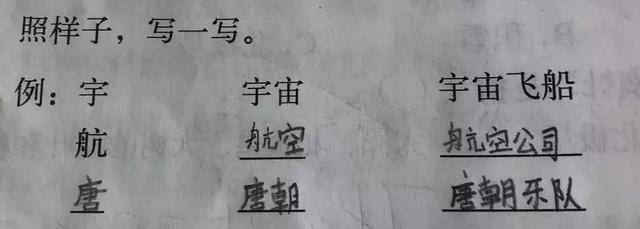 照样子，写一写。
例：宇 宇宙 宇宙飞船
航 航空 航空公司
唐 唐朝 唐朝乐队